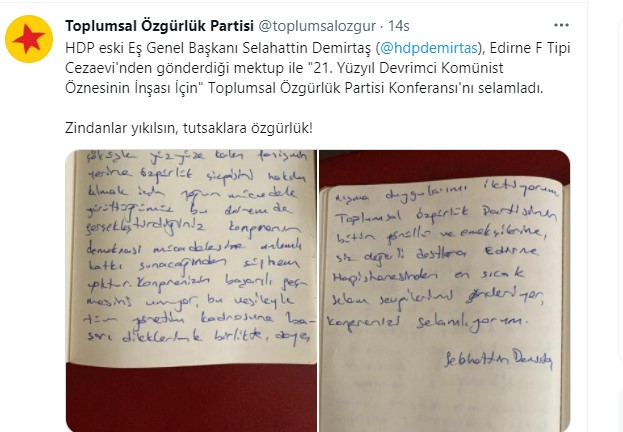 Toplumsal Özgürlük Partisi @toplumsalozgur · 14s
HDP eski Eş Genel Başkanı Selahattin Demirtaş (@hdpdemirtas), Edirne F Tipi
Cezaevi'nden gönderdiği mektup ile "21. Yüzyıl Devrimci Komünist
Öznesinin İnşası İçin" Toplumsal Özgürlük Partisi Konferansı'nı selamladı.
Zindanlar yıkılsın, tutsaklara özgürlük!
yüz yüze kalan faşizmin
yerine özgürlük güneşini hakim
kılmak için yoğun mücadele
yürüttüğümüz bu dönemde
gerçekleştirdiğiniz konferansın
demokrasi mücadelesine anlamlı
katkı sunacağından şüphem
yoktur. Konferansın başarılı geç-
mesini umuyor, bu vesileyle
tüm yönetim kadrosuna ba-
şarı dileklerimle birlikte, daya-
nışma duygularımı iletiyorum.
Toplumsal Özgürlük Partisinin
bütün gönüllü ve emekçilerine,
siz değerli dostlara Edirne
Hapishanesinden en sıcak
selam sevgilerimi gönderiyor,
konferansı selamlıyorum.
Selahattin Demirtaş